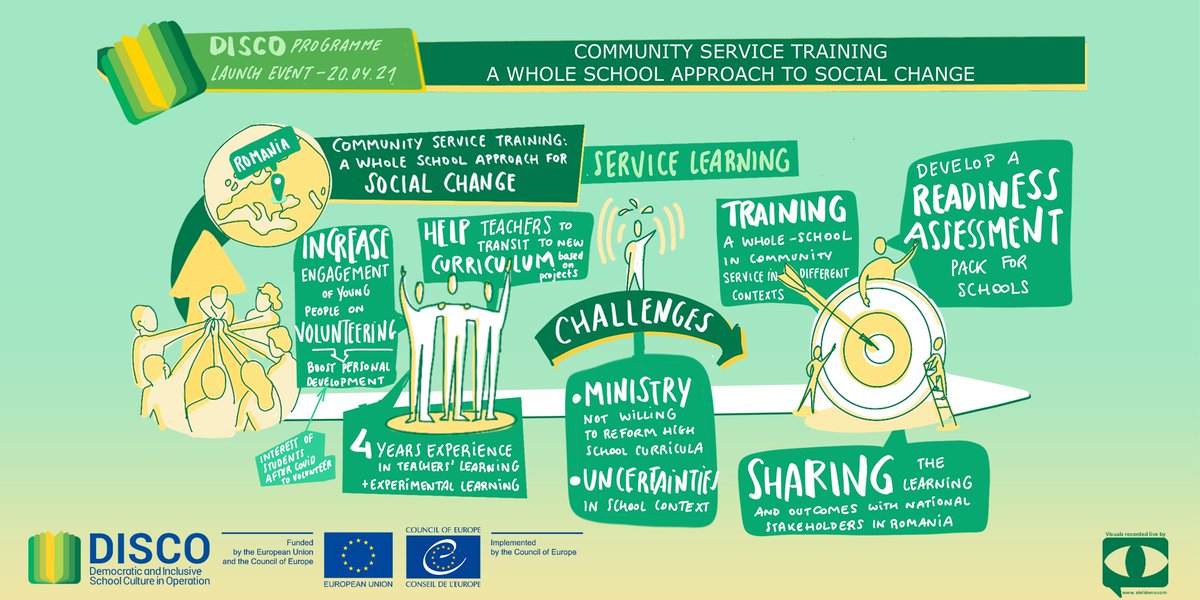 DISCO PROGRAMME
LAUNCH EVENT - 20.04.21
COMMUNITY SERVICE TRAINING
A WHOLE SCHOOL APPROACH TO SOCIAL CHANGE
ROMANIA
COMMUNITY SERVICE TRAINING:
A WHOLE SCHOOL APPROACH FOR
SOCIAL CHANGE
SERVICE LEARNING
INCREASE
ENGAGEMENT
OF YOUNG
PEOPLE ON
VOLUNTEERING
BOOST PERSONAL
DEVELOPMENT
INTEREST OF
STUDENTS
AFTER COVID
TO VOLUNTEER
HELP TEACHERS TO
TRANSIT TO NEW
CURRICULUM based
on
projects
4 YEARS EXPERIENCE
IN TEACHERS' LEARNING
+ EXPERIMENTAL LEARNING
CHALLENGES
• MINISTRY
NOT WILLING
TO REFORM HIGH
SCHOOL CURRICULA
• UNCERTAINTIES
IN SCHOOL CONTEXT
TRAINING
A WHOLE-SCHOOL
IN COMMUNITY
SERVICE IN DIFFERENT
CONTEXTS
DEVELOP A
READINESS
ASSESSMENT
PACK FOR
SCHOOLS
SHARING THE
LEARNING
AND OUTCOMES WITH NATIONAL
STAKEHOLDERS IN ROMANIA
DISCO
Democratic and Inclusive
School Culture in Operation
Funded
by the European Union
and the Council of Europe
EUROPEAN UNION
COUNCIL OF EUROPE
CONSEIL DE L'EUROPE
Implemented
by the Council of Europe
Visuals recorded live by
www.alelistens.com